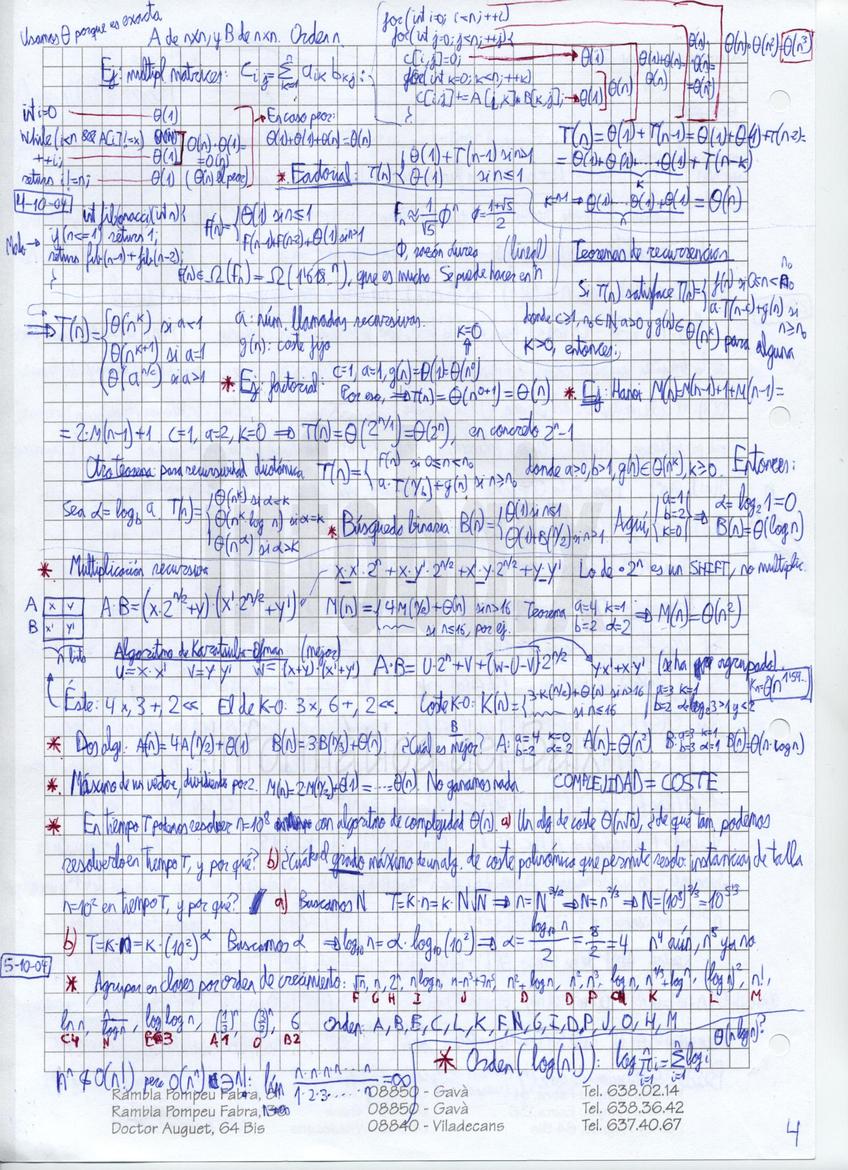 Usamos Θ porque es exacta
A de n×n, y B de n×n. Orden n.
for(int i=0; i<n; ++i)
for(int j=0; j<n; ++j){
c[i,j]=0; → Θ(1)
for(int k=0; k<n; ++k)
c[i,j] += A[i,k]*B[k,j]; → Θ(1)
}
Θ(n)
Θ(1)+Θ(n)=Θ(n)
Θ(n)·Θ(n²)=Θ(n³)
Ej: multipl matrices: C_ij = Σ_{k=1}^n a_ik b_kj;
int i=0 Θ(1)
while(i<n && A[i]!=x) Θ(1)
++i; Θ(1)
return i!=n; Θ(1)
O(n)·Θ(1)=O(n) (Θ(n) el peor)
En caso peor:
Θ(1)+Θ(1)+Θ(n)=Θ(n)
* Factorial: T(n) { Θ(1)+T(n-1) si n>1
Θ(1) si n≤1
T(n)=Θ(1)+T(n-1)=Θ(1)+Θ(1)+T(n-2)=
=Θ(1)+Θ(1)+...+Θ(1)+T(n-k)
k
Θ(1)+...Θ(1)+Θ(1)=Θ(n)
n
4-10-04
Malo → int fibonacci(int n){
if(n<=1) return 1;
return fib(n-1)+fib(n-2);
}
F(n)={ Θ(1) si n≤1
F(n-1)+F(n-2)+Θ(1) si n>1
F_n ≈ 1/√5 Φ^n Φ=(1+√5)/2
Φ, razón áurea (lineal)
F(n)∈Ω(f_n)=Ω(1'618..^n), que es mucho. Se puede hacer en n
Teoremas de recurrencias
Si T(n) satisface T(n){ f(n) si 0≤n<n₀
a·T(n-c)+g(n) si n≥n₀
donde c≥1, n₀∈ℕ, a>0 y g(n)∈Θ(n^k) para alguna
k≥0, entonces:
⇒ T(n)={ Θ(n^k) si a<1
Θ(n^{k+1}) si a=1
Θ(a^{n/c}) si a>1
a: núm. llamadas recursivas.
g(n): coste fijo
k=0
* Ej: factorial: c=1, a=1, g(n)=Θ(1)=Θ(n⁰)
Por eso, ⇒T(n)=Θ(n^{0+1})=Θ(n)
* Ej: Hanoi M(n)=M(n-1)+1+M(n-1)=
=2·M(n-1)+1. c=1, a=2, k=0 ⇒ T(n)=Θ(2^{n/1})=Θ(2^n), en concreto 2^n-1
Otro teorema para recursividad dicotómica T(n)={ f(n) si 0≤n<n₀
a·T(n/b)+g(n) si n≥n₀
donde a>0, b>1, g(n)∈Θ(n^k), k≥0. Entonces:
Sea α=log_b a T(n)={ Θ(n^k) si α<k
Θ(n^k log n) si α=k
Θ(n^α) si α>k
* Búsqueda binaria B(n)={ Θ(1) si n≤1
Θ(1)+B(n/2) si n>1
Aquí, { a=1 b=2 k=0 } ⇒ α=log₂1=0
B(n)=Θ(log n)
* Multiplicación recursiva
x·x'·2^n + x·y'·2^{n/2} + x'·y·2^{n/2} + y·y' Lo de ·2^n es un SHIFT, no multiplic.
A x y
B x' y'
n bits
A·B=(x·2^{n/2}+y)·(x'·2^{n/2}+y')
M(n)={ 4M(n/2)+Θ(n) si n>16
si n≤16, por ej.
Teorema a=4 k=1 b=2 α=2 ⇒ M(n)=Θ(n²)
Algoritmo de Karatsuba-Ofman (mejor)
U=x·x' V=y·y' W=(x+y)·(x'+y') A·B=U·2^n+V+(W-U-V)·2^{n/2} yx'+xy' (se ha reagrupado).
Éste: 4x, 3+, 2≪. El de K-O: 3x, 6+, 2≪. Coste K-O: K(n)={ 3·K(n/2)+Θ(n) si n>16
si n≤16
a=3 k=1
K(n)=Θ(n^{1'59...})
* Dos alg: A(n)=4A(n/2)+Θ(1) B(n)=3B(n/3)+Θ(n). ¿Cuál es mejor? B A: a=4 k=0 b=2 α=2 A(n)=Θ(n²) B: a=3 k=1 b=3 α=1 B(n)=Θ(n·logn)
* Máximo de un vector, dividiendo por 2. M(n)=2M(n/2)+Θ(1)=...=Θ(n). No ganamos nada. COMPLEJIDAD = COSTE
* En tiempo T podemos resolver n=10⁸ con algoritmo de complejidad Θ(n). a) Un alg de coste Θ(n√n), ¿de qué tam. podemos
resolverlo en tiempo T, y por qué? b) ¿Cuál el grado máximo de un alg. de coste polinómico que permite resolv. instancias de talla
n=10² en tiempo T, y por qué? a) Buscamos N T=k·n=k·N√N ⇒ n=N^{3/2} ⇒ N=n^{2/3} ⇒ N=(10⁸)^{2/3}=10^{5'3}
b) T=k·n=k·(10²)^α Buscamos α ⇒ log₁₀ n=α·log₁₀(10²) ⇒ α= log₁₀ n / 2 = 8/2 = 4 n⁴ aún, n⁵ ya no.
5-10-04
* Agrupar en clases por orden de crecimiento: √n, n, 2^n, n log n, n-n³+7n⁵, n²+log n, n², n³, log n, n^{1/3}+log n, (log n)², n!,
F G H I J D D P K L M
ln n, n/log n, log log n, (1/3)^n, (3/2)^n, 6 Orden: A, B, E, C, L, K, F, N, G, I, D, P, J, O, H, M
C4 N E3 A1 O B2
n^n ∉ O(n!) pero O(n^n) ∋ n!: lím n·n·n·n···n / 1·2·3·... =∞
* Orden (log(n!)): log Π_{i=1}^n i = Σ_{i=1}^n log i Θ(n log n)?
Rambla Pompeu Fabra, 08850 - Gavà Tel. 638.02.14
Rambla Pompeu Fabra, 08850 - Gavà Tel. 638.36.42
Doctor Auguet, 64 Bis 08840 - Viladecans Tel. 637.40.67
4